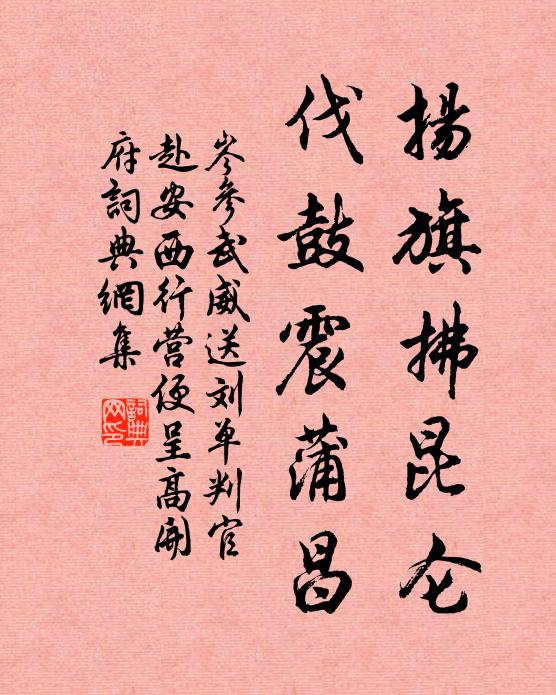 揚旗拂昆仑
伐鼓震蒲昌
岑參武威送刘单判官
赴安西行营便呈高開
府詞典網集
詞典
网印